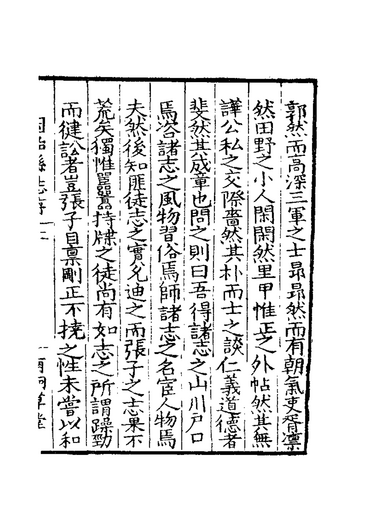 郭然而高深三軍之士昻昻然而有朝氣吏胥凛
然田野之小人閑閑然里甲惟正之外帖然其無
譁公私之交際嗇然其朴而士之談仁義道德者
斐然其成章也問之則曰吾得諸志之山川戶口
焉咨諸志之風物習俗焉師諸志之名宦人物焉
夫然後知匪徒志之實允迪之而張子之志果不
荒矣獨惟嚚嚚持牒之徒尚有如志之所謂躁勁
而健訟者豈張子自稟剛正不撓之性未嘗以和